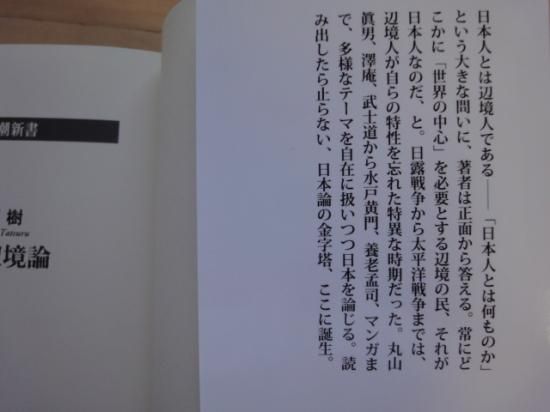 日本人とは辺境人である――「日本人とは何ものか」
という大きな問いに、著者は正面から答える。常にど
こかに「世界の中心」を必要とする辺境の民、それが
日本人なのだ、と。日露戦争から太平洋戦争までは、
辺境人が自らの特性を忘れた特異な時期だった。丸山
眞男、澤庵、武士道から水戸黄門、養老孟司、マンガま
で、多様なテーマを自在に扱いつつ日本を論じる。読
み出したら止らない、日本論の金字塔、ここに誕生。
潮新書
樹
Tatsuru
境論